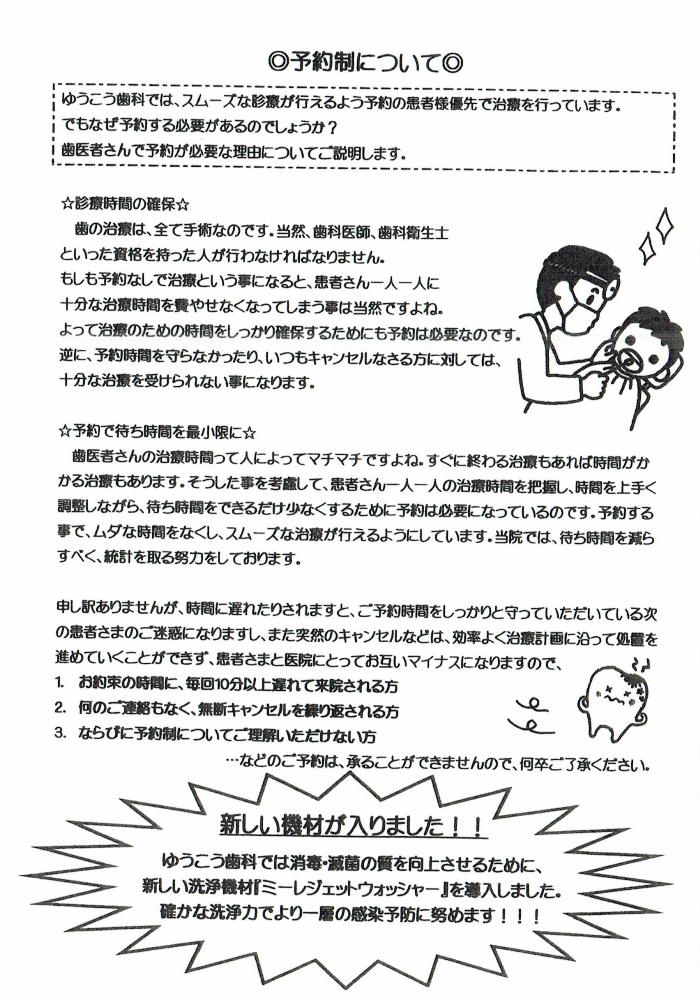 ◎予約制について◎
ゆうこう歯科では、スムーズな診療が行えるよう予約の患者様優先で治療を行っています。
でもなぜ予約する必要があるのでしょうか？
歯医者さんで予約が必要な理由についてご説明します。
☆診療時間の確保☆
歯の治療は、全て手術なのです。当然、歯科医師、歯科衛生士
といった資格を持った人が行わなければなりません。
もしも予約なしで治療という事になると、患者さん一人一人に
十分な治療時間を費やせなくなってしまう事は当然ですよね。
よって治療のための時間をしっかり確保するためにも予約は必要なのです。
逆に、予約時間を守らなかったり、いつもキャンセルなさる方に対しては、
十分な治療を受けられない事になります。
☆予約で待ち時間を最小限に☆
歯医者さんの治療時間って人によってマチマチですよね。すぐに終わる治療もあれば時間がか
かる治療もあります。そうした事を考慮して、患者さん一人一人の治療時間を把握し、時間を上手く
調整しながら、待ち時間をできるだけ少なくするために予約は必要になっているのです。予約する
事で、ムダな時間をなくし、スムーズな治療が行えるようにしています。当院では、待ち時間を減ら
すべく、統計を取る努力をしております。
申し訳ありませんが、時間に遅れたりされますと、ご予約時間をしっかりと守っていただいている次
の患者さまのご迷惑になりますし、また突然のキャンセルなどは、効率よく治療計画に沿って処置を
進めていくことができず、患者さまと医院にとってお互いマイナスになりますので、
1. お約束の時間に、毎回10分以上遅れて来院される方
2. 何のご連絡もなく、無断キャンセルを繰り返される方
3. ならびに予約制についてご理解いただけない方
…などのご予約は、承ることができませんので、何卒ご了承ください。
新しい機材が入りました！！
ゆうこう歯科では消毒・滅菌の質を向上させるために、
新しい洗浄機材『ミーレジェットウォッシャー』を導入しました。
確かな洗浄力でより一層の感染予防に努めます！！！